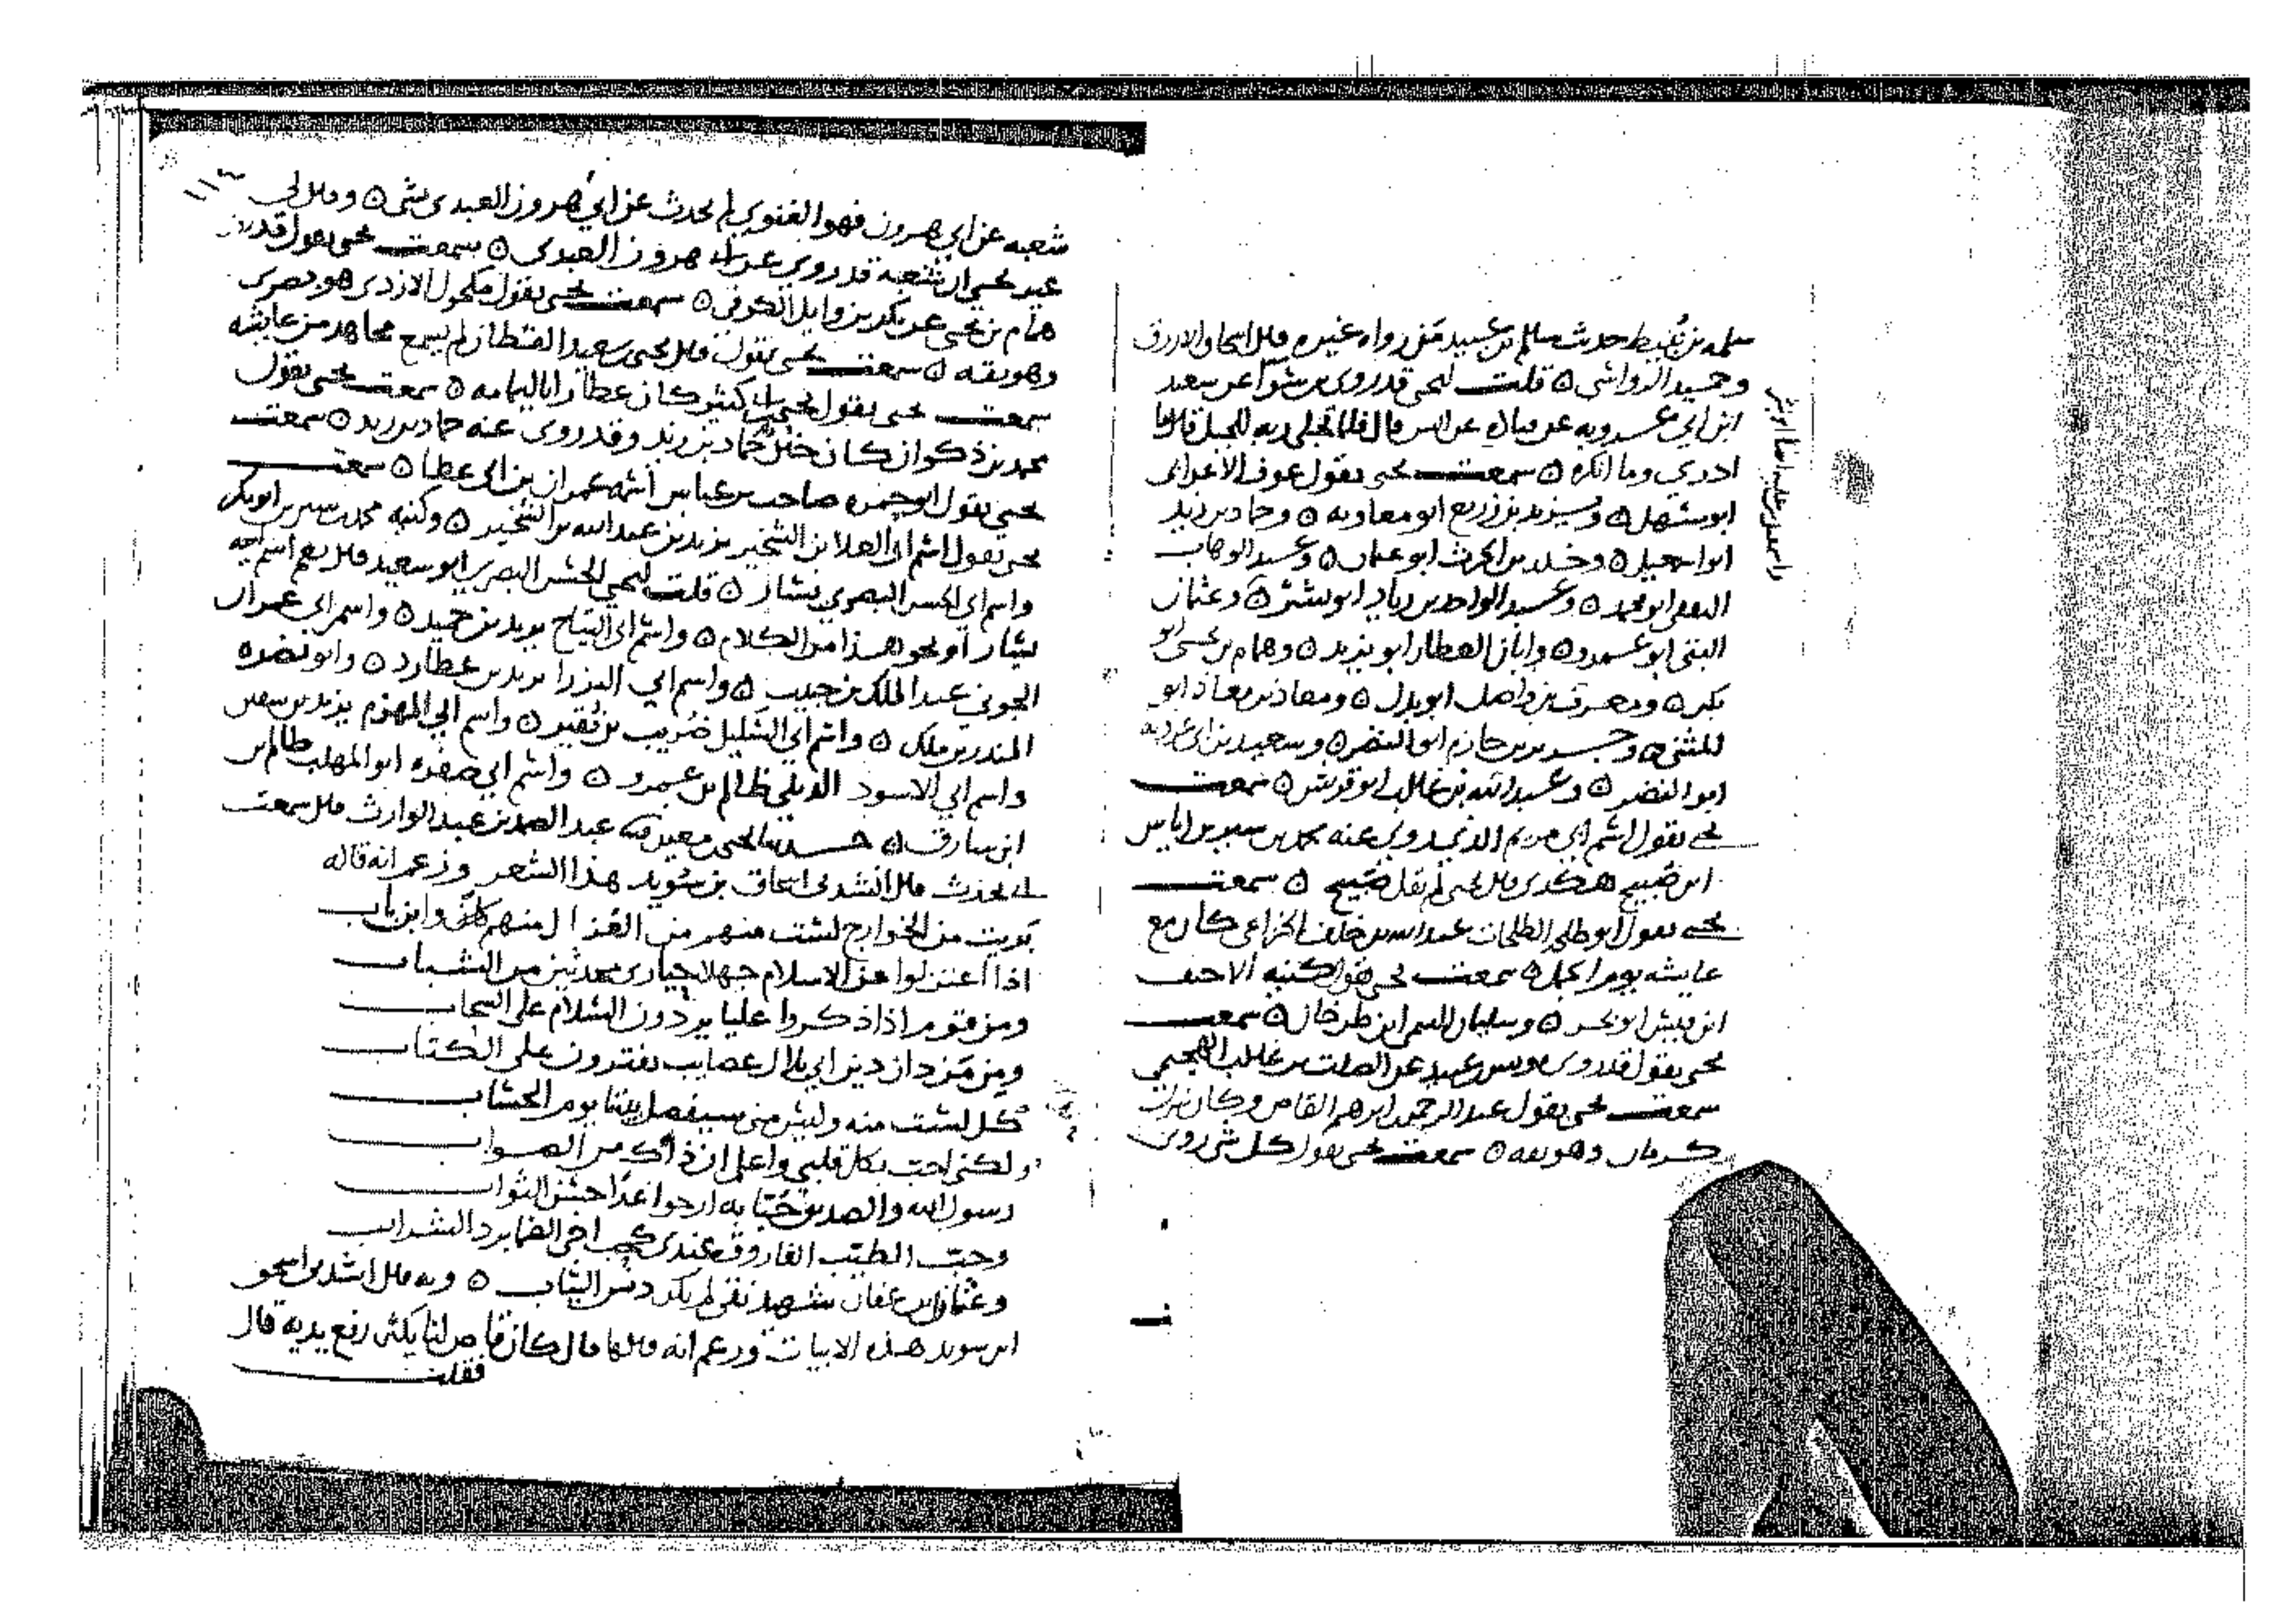 سلمه بن نبيط حدث سلم بن عبيد من رواه غيره قال اسحاق الازرق
وحميد الرواسي ه قلت ليحيى قدروى بن سوا عن سعيد
ابن ابي عروبه عن قتاده عن انس قال فلما تجلى ربه للجبل قال ما
ادري وما انكره ه سمعت يحيى يقول عوف الاعرابي
ابو سهل ه ويزيد بن زريع ابو معاويه ه وحماد بن زيد
ابو اسمعيل ه وخلد بن الحرث ابو عثمان ه وعبد الوهاب
الثقفي ابو محمد ه وعبد الواحد بن زياد ابو بشر ه وعثمان
البتي ابو عمرو ه وابان العطار ابو يزيد ه وهمام بن يحيى ابو
بكر ه ومعرف بن واصل ابو بدل ه ومعاذ بن معاذ ابو
المثنى ه وجرير بن حازم ابو النضر ه وسعيد بن ابي عروبه
ابو النضر ه وعبد الله بن غالب ابو قريش ه سمعت
يحيى يقول اسم ابي مريم الذي يروي عنه محمد بن سيرين اياس
ابن ضبيح هكذى قال يحيى لم يقل صبيح ه سمعت
يحيى يقول ابو طلحه الطلحات عبد الله بن خلف الخزاعي كان مع
عايشه يوم الجمل ه سمعت يحيى يقول كنيه الاحنف
ابن قيس ابو بحر ه وسليمان التيمي ابن طرخان ه سمعت
يحيى يقول قد روى يونس بن عبيد عن الصلت بن غالب الهجيمي
سمعت يحيى يقول عبد الرحمن بن ابرهيم القاص وكان نزل
كرمان وهو ثقه ه سمعت يحيى يقول كل شي روى
واسمعيل بن عليه ايضا ابو بشر
١١٣
شعبه عن ابي هرون فهو الغنوي لم يحدث عن ابي هرون العبدي بشي ه وقال لي
غير يحيى ان شعبة قد روى عن ابي هرون العبدى ه سمعت يحيى يقول قد روى
همام بن يحيى عن بكر بن وايل الكوفي ه سمعت يحيى يقول مكحول الازدي هو بصري
وهو ثقه ه سمعت يحيى يقول قال يحيى بن سعيد القطان لم يسمع مجاهد من عايشه
سمعت يحيى يقول يحيى بن ابي كثير كان عطارا باليمامه ه سمعت يحيى يقول
محمد بن ذكوان كان خال حماد بن زيد وقد روى عنه حماد بن زيد ه سمعت
يحيى يقول ابو حمزه صاحب بن عباس اسمه عمران بن ابي عطا ه سمعت
يحيى يقول اسم ابي العلا بن الشخير يزيد بن عبد الله بن الشخير ه وكنيه محمد بن سيرين ابو بكر
واسم ابي الحسن البصري يسار ه قلت ليحيى الحسن البصري ابو سعيد قال نعم اسم ابيه
يسار او نحو هذا من الكلام ه واسم ابي التياح يزيد بن حميد ه واسم ابي عمران
الجوني عبد الملك بن حبيب ه واسم ابي البزرا يزيد بن عطارد ه وابو نضره
المنذر بن ملك ه واسم ابي السليل ضريب بن نقير ه واسم ابي المهزم يزيد بن سفين
واسم ابي الاسود الديلي ظالم بن عمرو ه واسم ابي صفره ابو المهلب ظالم بن
ابن سارق ه حدثنا يحيى بن معين ثنا عبد الصمد بن عبد الوارث قال سمعت
ابي يحدث قال انشدني اسحاق بن سويد هذا الشعر وزعم انه قاله
بريت من الخوارج لست منهم من الغزال منهم وابن باب
اذا اعتزلوا عن الاسلام جهلا حيارى محدثين من الشباب
ومن قوم اذا ذكروا عليا يردون السلام على السحاب
ومن من دان دين ابي بلال عصايب يفترون على الكتاب
فكل لست منه وليس مني سيفصل بيننا يوم الحساب
ولكني احب بكل قلبي واعلم ان ذاك من الصواب
رسول الله والصديق حبا به ارجوا غدا حسن الثواب
وحب الطيب الفاروق عندي كحب اخي الظما برد الشراب
وعثمان بن عفان شهيد نقي لم يكن دنس الثياب ه وبه قال انشدني اسحق
ابن سويد هذه الابيات وزعم انه قالها قال كان قاص لنا يكثر رفع يديه قال
فقلت